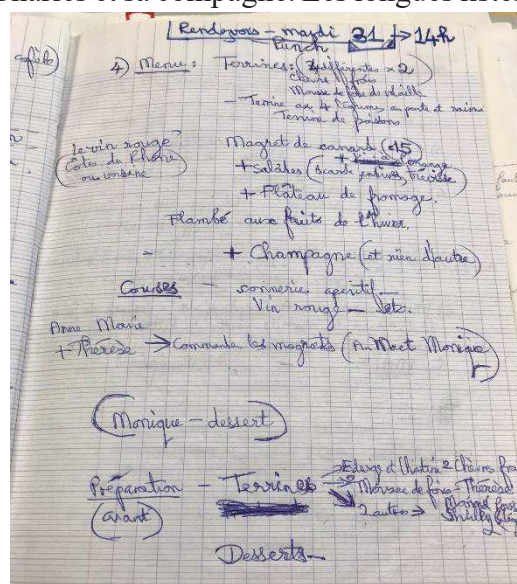 Rendezvous - mardi 31 → 14h
Punch
4) Menu: Terrines: (4 différentes × 2)
chèvre frais
Mousse de foie de volaille
- Terrine aux 4 légumes au porto et raisins
Terrine de poissons
Le vin rouge
(Côtes du Rhône
ou voisine
Magret de canard (15)
+ orange
+ salades (scarole, endives, trévise)
+ Plateau de fromage.
Flambé aux fruits de l'hiver.
- + Champagne (et rien d'autre)
Courses - conneries apéritif -
Vin rouge - etc.
Anne Marie
+ Thérèse → Commande les magrets (A.M et Monique)
(Monique - dessert)
Préparation - Terrines
(avant)
→ Edwige et Christine 2 Chèvres frais
→ Mousse de foies - Thérèse
2 autres →
Desserts -